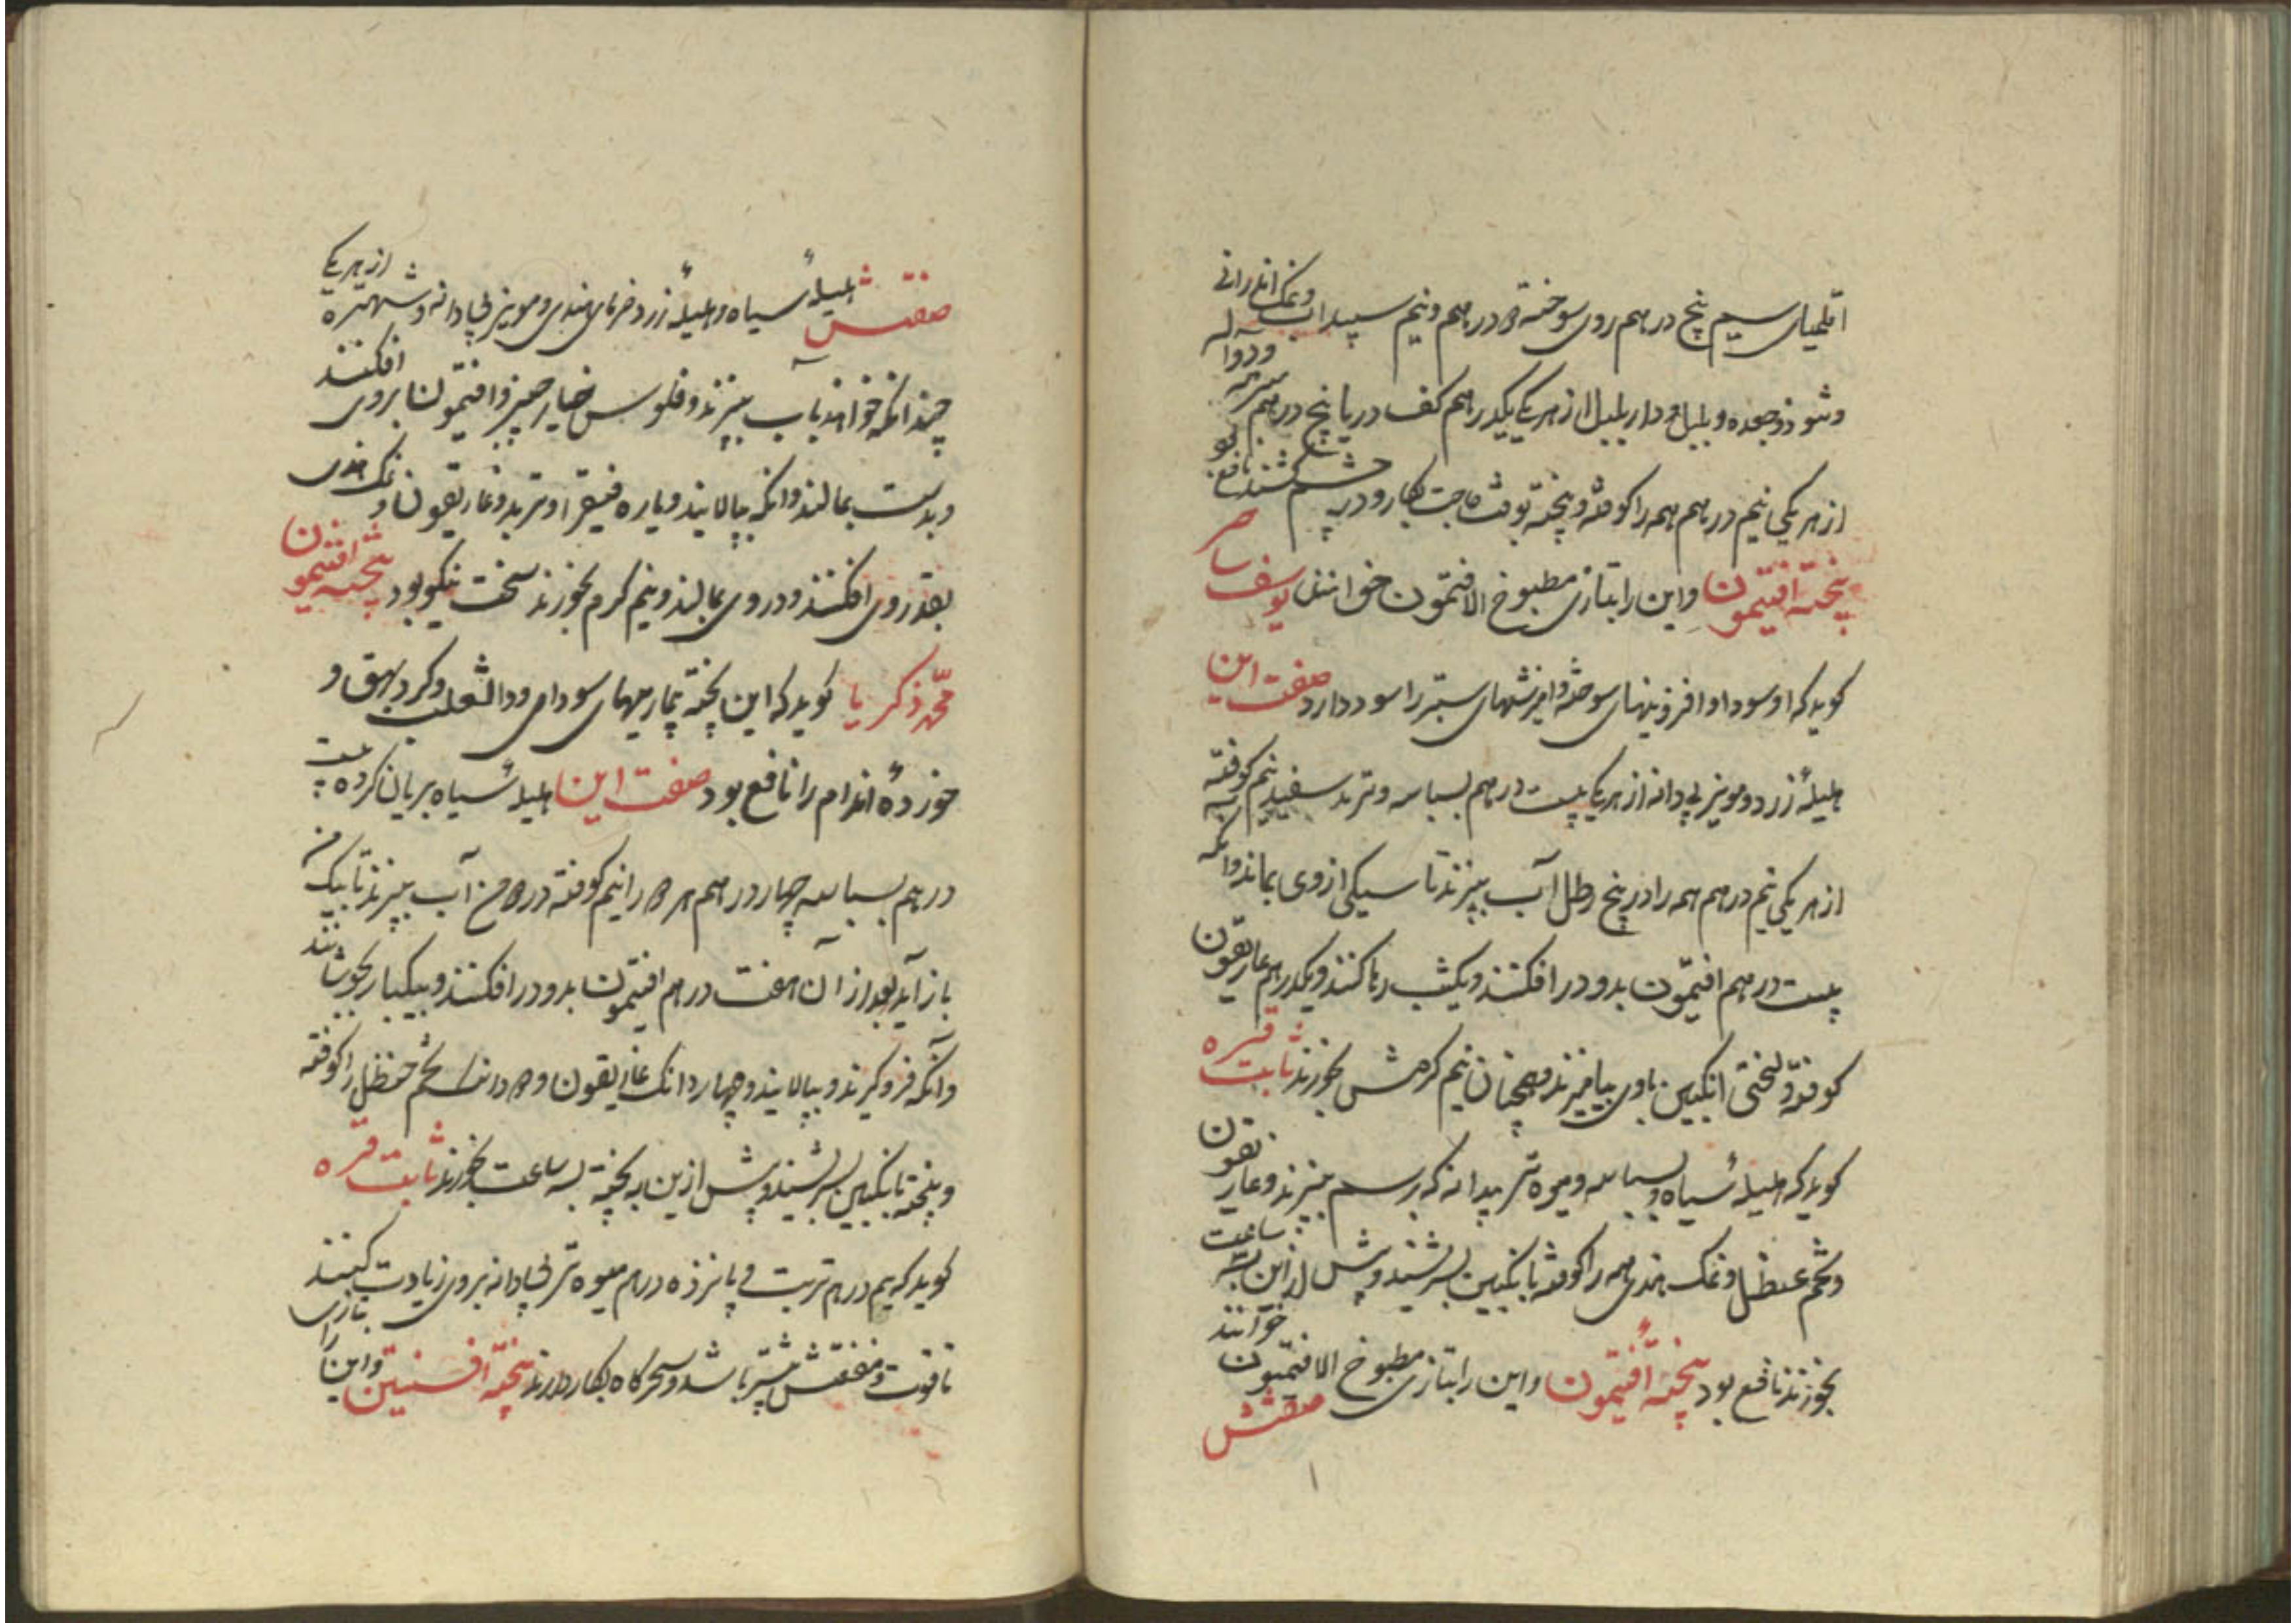 اقلمیای سیم پنج درهم روی سوخته دو درهم ونیم سپیداب ونمک اندرانی
از هریکی نیم درهم همه را کوفته وبیخته بوقت حاجت بکار ودر چشم کشند نافع بود
پخته افتیمون واین را بتازی مطبوخ الافتیمون خوانند یوسف ساهر
کوید که او سودا وافزونیهای سوخته وامیزشهای ستبر را سود دارد صفت این
هلیلهٔ زرد ومویز بی دانه از هریکی بیست درهم بسباسه وتربد سفید نیم کوفته
از هریکی نیم درهم همه را در پنج رطل آب بپزند تا سیکی از وی بماند وآنکه
بیست درهم افتیمون بدو در افکنند ویکشب رها کنند ویکدرهم غاریقون
کوفته ولختی انکبین باوی بیامیزند وهمچنان نیم کرمش بخورند ثابت قره
کوید که هلیلهٔ سیاه وبسباسه ومیوه تر بیدانه که برسم بپزند وغاریقون
ونمک هندی همه را کوفته بانکبین بسرشند وپیش از این بسه ساعت
بخورند نافع بود پختهٔ افتیمون واین را بتازی مطبوخ الافتیمون خوانند صفتش
صفتش هلیلهٔ سیاه وهلیلهٔ زرد وخرمای هندی ومویز بی دانه وشهتره از هریکی
چندانکه خواهند بآب بپزند وفلوس خیار چنبر وافتیمون بروی افکنند
وبدست بمالند وآنکه بپالایند ویاره فیقرا وتربد وغاریقون ونمک هندی
بقدر روی افکنند ودر وی بمالند ونیم کرم بخورند سخت نیکو بود پخته افتیمون
محمد زکریا کوید که این پخته بیماریهای سودای وداالثعلب وکر وبهق و
خوردهٔ اندام را نافع بود صفت این هلیلهٔ سیاه بریان کرده بیست
درهم بسباسه چهار درهم هر دو را نیم کوفته در دو من آب بپزند تا بیک من
باز آید بعد از آن هفت درهم افتیمون بدو در افکنند وبیکبار بجوشانند
وآنکه فرو کیرند وبپالایند وچهار دانک غاریقون ودو دانک شحم حنظل را کوفته
وبیخته بانکبین بسرشند وپیش از این پخته بسه ساعت بخورند ثابت قره
کوید که نیم درهم تربت و پانزده درهم میوه تر بی دانه بروی زیادت کنند
تا قوت ومنفعتش بیشتر باشد وسحرکاه بکار دارند پختهٔ افسنتین واین را بتازی